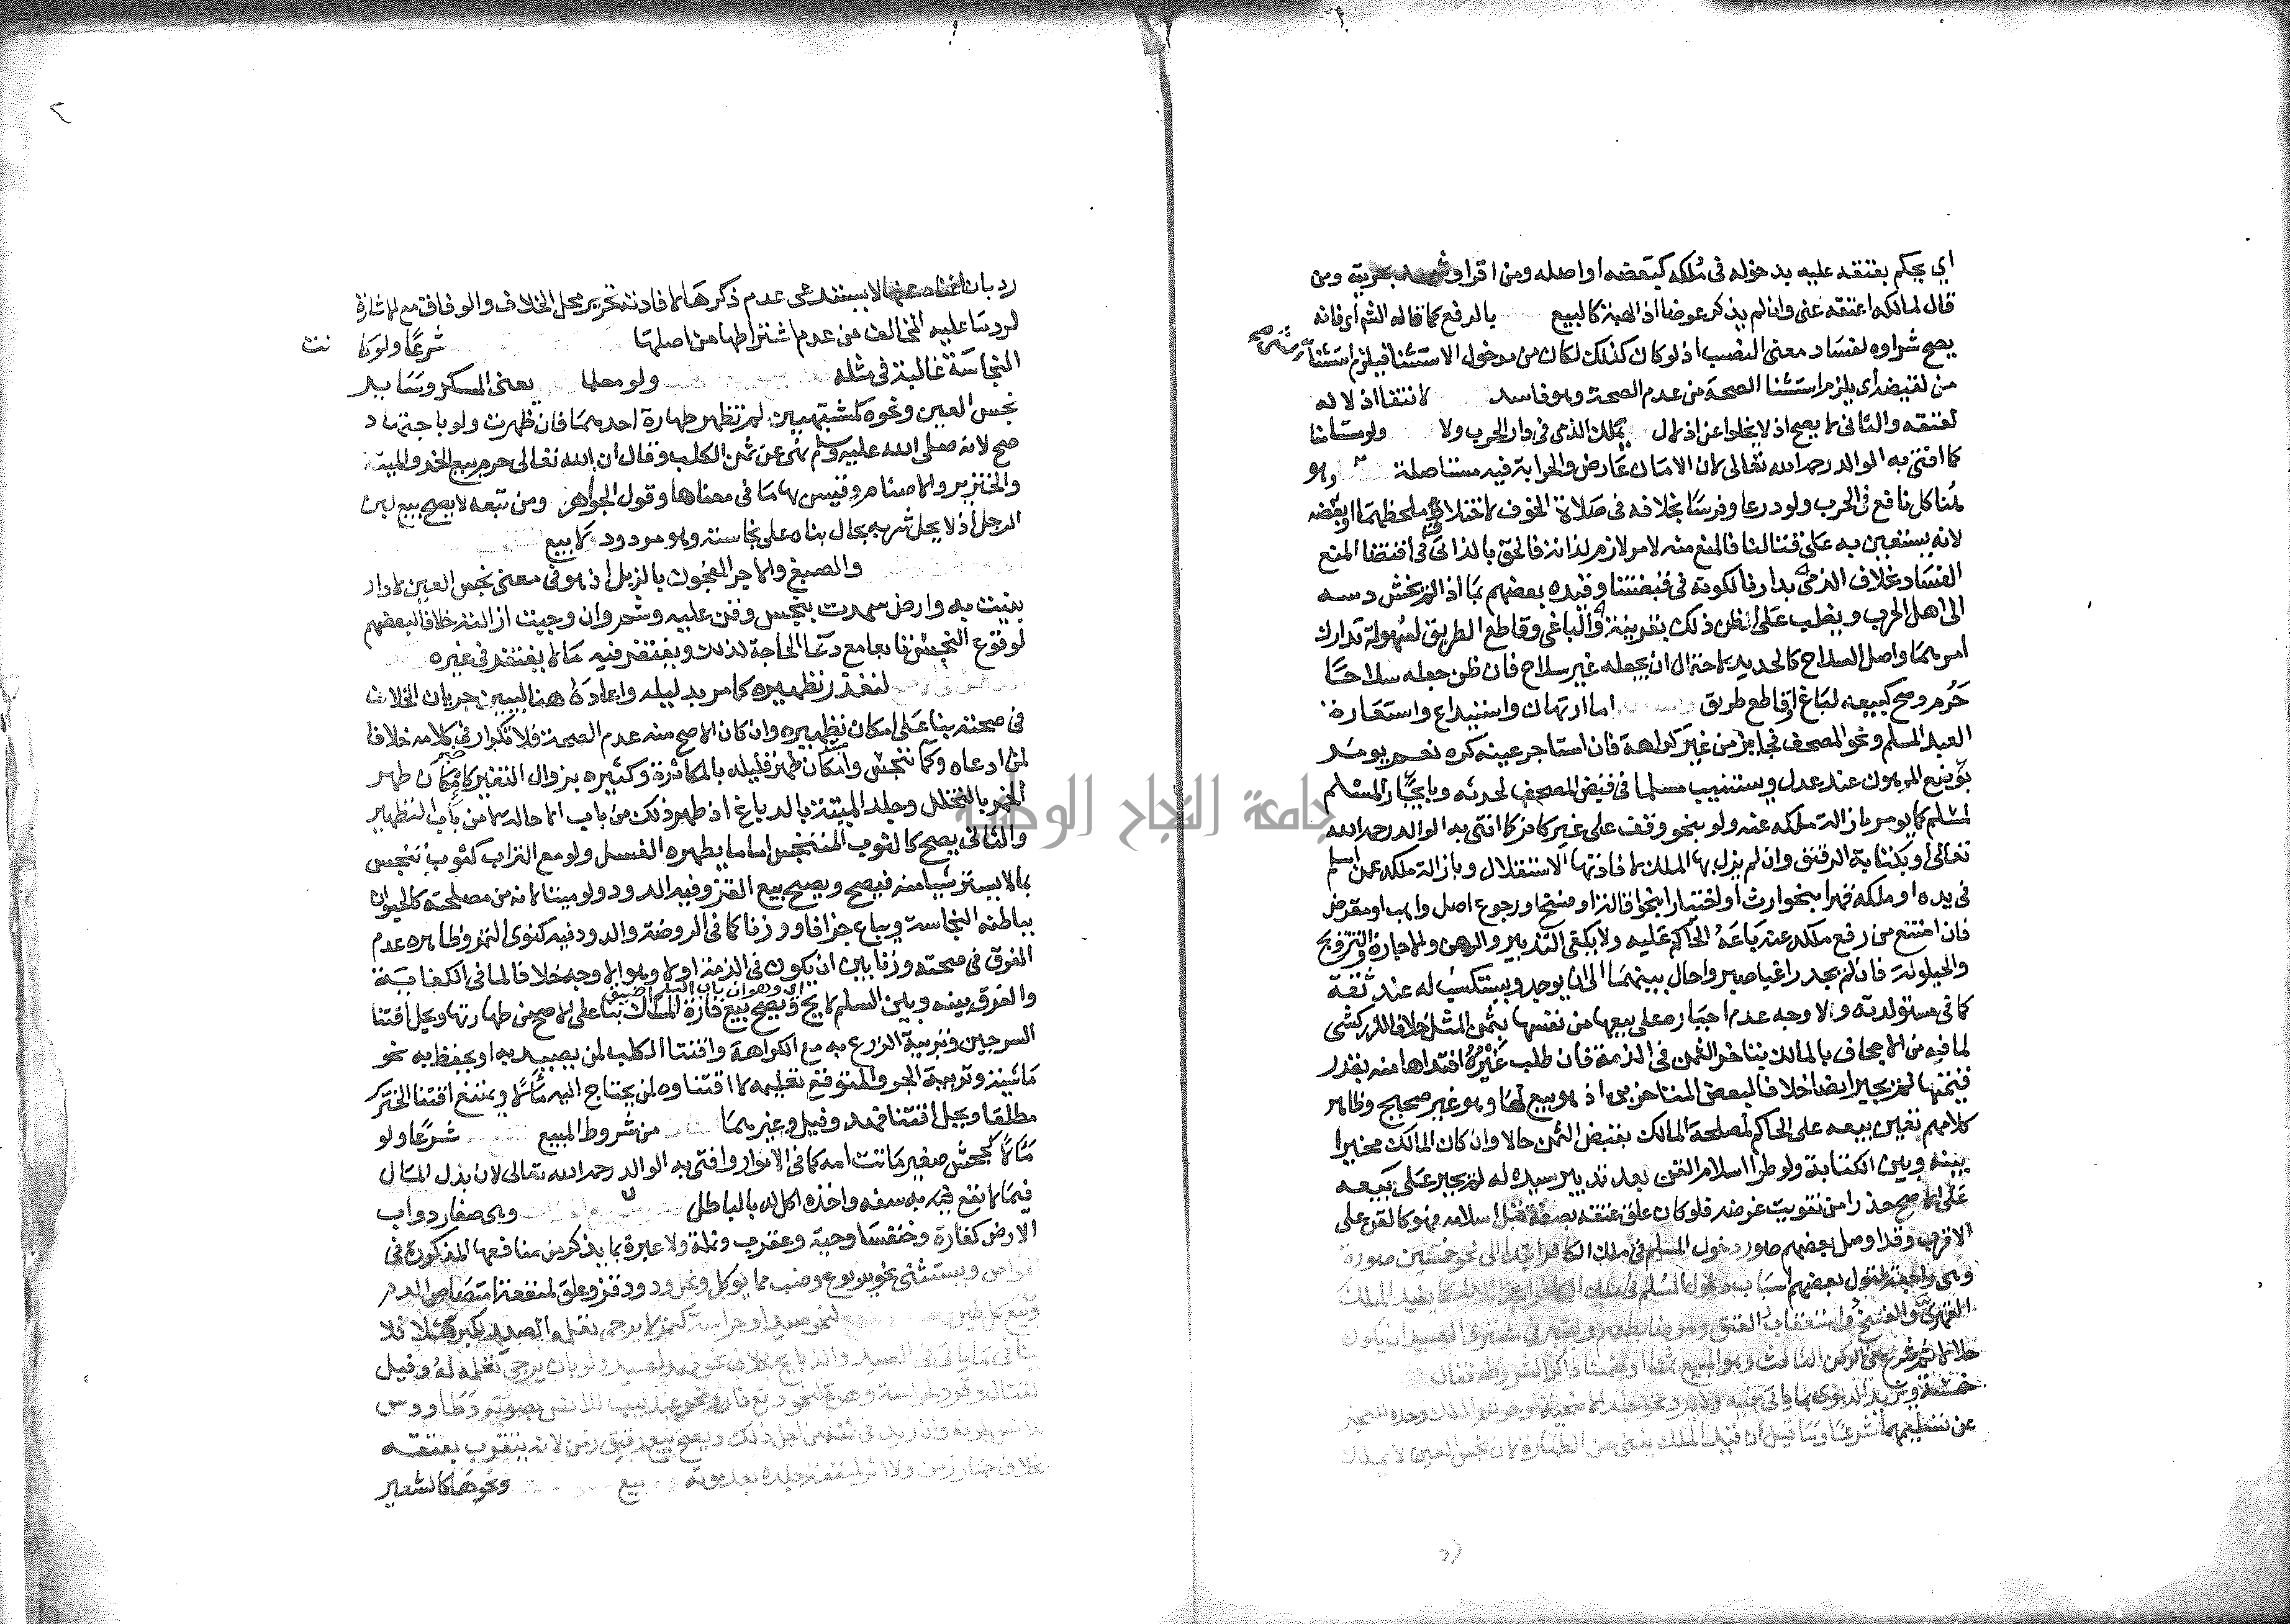 اي يحكم بعتقه عليه بدخوله في ملكه كبعضه او اصله ومن اقر او شهد بحريته ومن
قال لمالكه اعتقه عني وان لم يذكر عوضا اذ الهبة كالبيع بالرفع كما قاله الشارح فانه
يصح شراوه لفساد معنى النصب اذ لو كان كذلك لكان من مدخول الاستثنا فيلزم استثنا
من لنقيضه اي يلزم استثنا الصحة من عدم الصحة وهو فاسد لانتفا اذلاله
لعتقه والثاني لا يصح اذ لا يخلوا عن اذلال بملك الذمي في دار الحرب ولا ولو مستامنا
كما افتى به الوالد رحمه الله تعالى لان الامان عارض والحرابة فيه مستاصلة وهو
هنا كل نافع في الحرب ولو درعا وفرسا بخلافه في صلاة الخوف لاختلاف ملحظهما او بعضه
لانه يستعين به على قتالنا فالمنع منه لامر لازم لذاته فالحق بالذاتي في اقتضا المنع
الفساد بخلاف الذمي بدارنا لكونه في قبضتنا وقيده بعضهم بما اذا لم يخش دسه
الى اهل الحرب ويغلب على الظن ذلك بقرينة والباغي وقاطع الطريق لسهولة تدارك
امرهما واصل السلاح كالحديد لاحتمال ان يجعله غير سلاح فان ظن جعله سلاحا
حرم وصح كبيعه لباغ او قاطع طريق اما ارتهان واستيداع واستعارة
العبد المسلم ونحو المصحف فجايز من غير كراهة فان استاجر عينه كره نعم يومر
بوضع المرهون عند عدل ويستنيب مسلما في قبض المصحف لحدثه وبايجار المسلم
لمسلم كما يومر بازالة ملكه عنه ولو بنحو وقف على غير كافر كما افتى به الوالد رحمه الله
تعالى او بكتابة الرقيق وان لم يزل بها الملك لافادتها الاستقلال وبازالة ملكه عمن اسلم
في يده او ملكه قهرا بنحو ارث او اختيارا بنحو اقالة او فسخ او رجوع اصل واهب او مقرض
فان امتنع من رفع ملكه عنه باعه الحاكم عليه ولا يكفي التدبير والرهن والاجارة والتزويج
والحيلولة فان لم يجد راغبا صبر واحال بينهما الى ان يوجد ويستكسب له عند ثقة
كما في مستولدته والاوجه عدم اجباره على بيعها من نفسها بثمن المثل خلافا للزركشي
لما فيه من الاجحاف بالمالك بتاخر الثمن في الذمة فان طلب غيره افتداها منه بقدر
قيمتها لم يجبر ايضا خلافا لبعض المتاخرين اذ هو بيع لها وهو غير صحيح وظاهر
كلامهم تعين بيعه على الحاكم لمصلحة المالك بقبض الثمن حالا وان كان المالك مخيرا
بينه وبين الكتابة ولو طرا اسلام القن بعد تدبير سيده له لم يجبر على بيعه
على الاصح حذرا من تفويت غرضه فلو كان علق عتقه بصفة قبل اسلامه فهو كالقن على
الاقرب وقد اوصل بعضهم صور دخول المسلم في ملك الكافر ابتدا الى نحو خمسين صورة
وهي راجعة لقول بعضهم اسباب دخول المسلم في ملك الكافر ثلاثة ما يفيد الملك
القهري والفسخ واستعقاب العتق وهو ضابط مهم في مشتري العبد ان يكون
حلالا ثم شرع في الركن الثالث وهو المبيع ثمنا او مثمنا ذاكرا لشروطه فقال
خمسة ويزيد الربوي بما ياتي فيه ولا يرد نحو جلد الاضحية وحريم الملك وحده للعجز
عن تسليمهما شرعا وما قيل ان قيد الملك يغني عن الطهارة لان نجس العين لا يملك
٢
رد بان اغناه عنها لا يستدعي عدم ذكرها لافادته تحرير محل الخلاف والوفاق مع الاشارة
لرد ما عليه المخالف من عدم اشتراطها من اصلها شرعا ولو
النجاسة غالبة في مثله ولو معلما يعني المسكر وساير
نجس العين ونحوه كمشتبهين لم تظهر طهارة احدهما فان ظهرت ولو باجتهاد
صح لانه صلى الله عليه وسلم نهى عن ثمن الكلب وقال ان الله تعالى حرم بيع الخمر والميتة
والخنزير والاصنام وقيس بها ما في معناها وقول الجواهر ومن تبعه لا يصح بيع لبن
الرجل اذ لا يحل شربه بحال بناه على نجاسته وهو مردود لا بيع
والصبغ والاجر المعجون بالزبل اذ هو في معنى نجس العين لا دار
بنيت به وارض سمدت بنجس وقن عليه وشم وان وجبت ازالته خلافا لبعضهم
لوقوع النجس تابعا مع دعا الحاجة لذلك ويغتفر فيه ما لا يغتفر في غيره
لتعذر تطهيره كما مر بدليله واعاده هنا ليبين جريان الخلاف
في صحته بنا على امكان تطهيره وان كان الاصح منه عدم الصحة فلا تكرار في كلامه خلافا
لمن ادعاه وكما تنجس وامكان طهر قليله بالمكاثرة وكثيره بزوال التغير كامكان طهر
الخمر بالتخلل وجلد الميتة بالدباغ اذ طهر ذلك من باب الاحالة لا من باب التطهير
والثاني يصح كالثوب المتنجس اما ما يطهره الغسل ولو مع التراب كثوب تنجس
بما لا يستر شيا منه فيصح ويصح بيع القز وفيه الدود ولو ميتا لانه من مصلحته كالحيوان
بباطنه النجاسة ويباع جزافا ووزنا كما في الروضة والدود فيه كنوى التمر وظاهره عدم
الفرق في صحته وزنا بين ان يكون في الذمة او لا وهو الاوجه خلافا لما في الكفاية
اي وهو ان باب السلم اضيق
والفرق بينه وبين السلم لايح ويصح بيع فارة المسك بنا على الاصح من طهارتها ويحل اقتنا
السرجين وتربية الزرع به مع الكراهة واقتنا الكلب لمن يصيد به او يحفظ به نحو
ماشية وتربية الجرو المتوقع تعليمه لا اقتناوه لمن يحتاج اليه مالا ويمتنع اقتنا الخنزير
مطلقا ويحل اقتنا فهد وفيل وغيرهما من شروط المبيع شرعا ولو
مالا كجحش صغير ماتت امه كما في الانوار وافتى به الوالد رحمه الله تعالى لان بذل المال
فيما لا نفع فيه سفه واخذه اكل له بالباطل وهي صغار دواب
الارض كفارة وخنفسا وحية وعقرب ونملة ولا عبرة بما يذكر من منافعها المذكورة في
الخواص ويستثنى نحو يربوع وضب مما يوكل ونحل ودود قز وعلق لمنفعة امتصاص الدم
وبيع كل طير لنحو صيد او حراسة كنمر لا يرجى تعلمه الصيد لكبره مثلا فلا
ينافي ما ياتي في الصيد والذبايح بخلاف نحو فهد لصيد ولو بان يرجى تعلمه له وفيل
لقتال وقرد لحراسة وهرة لنحو دفع فارة ونحو عندليب للانس بصوته وطاووس
للانس بلونه وان زيد في ثمنه من اجل ذلك ويصح بيع رقيق زمن لانه يتقرب بعتقه
بخلاف حمار زمن ولا اثر لمنفعة جلده بعد موته بيع ونحوها كالشعير
جامعة النجاح الوطنية